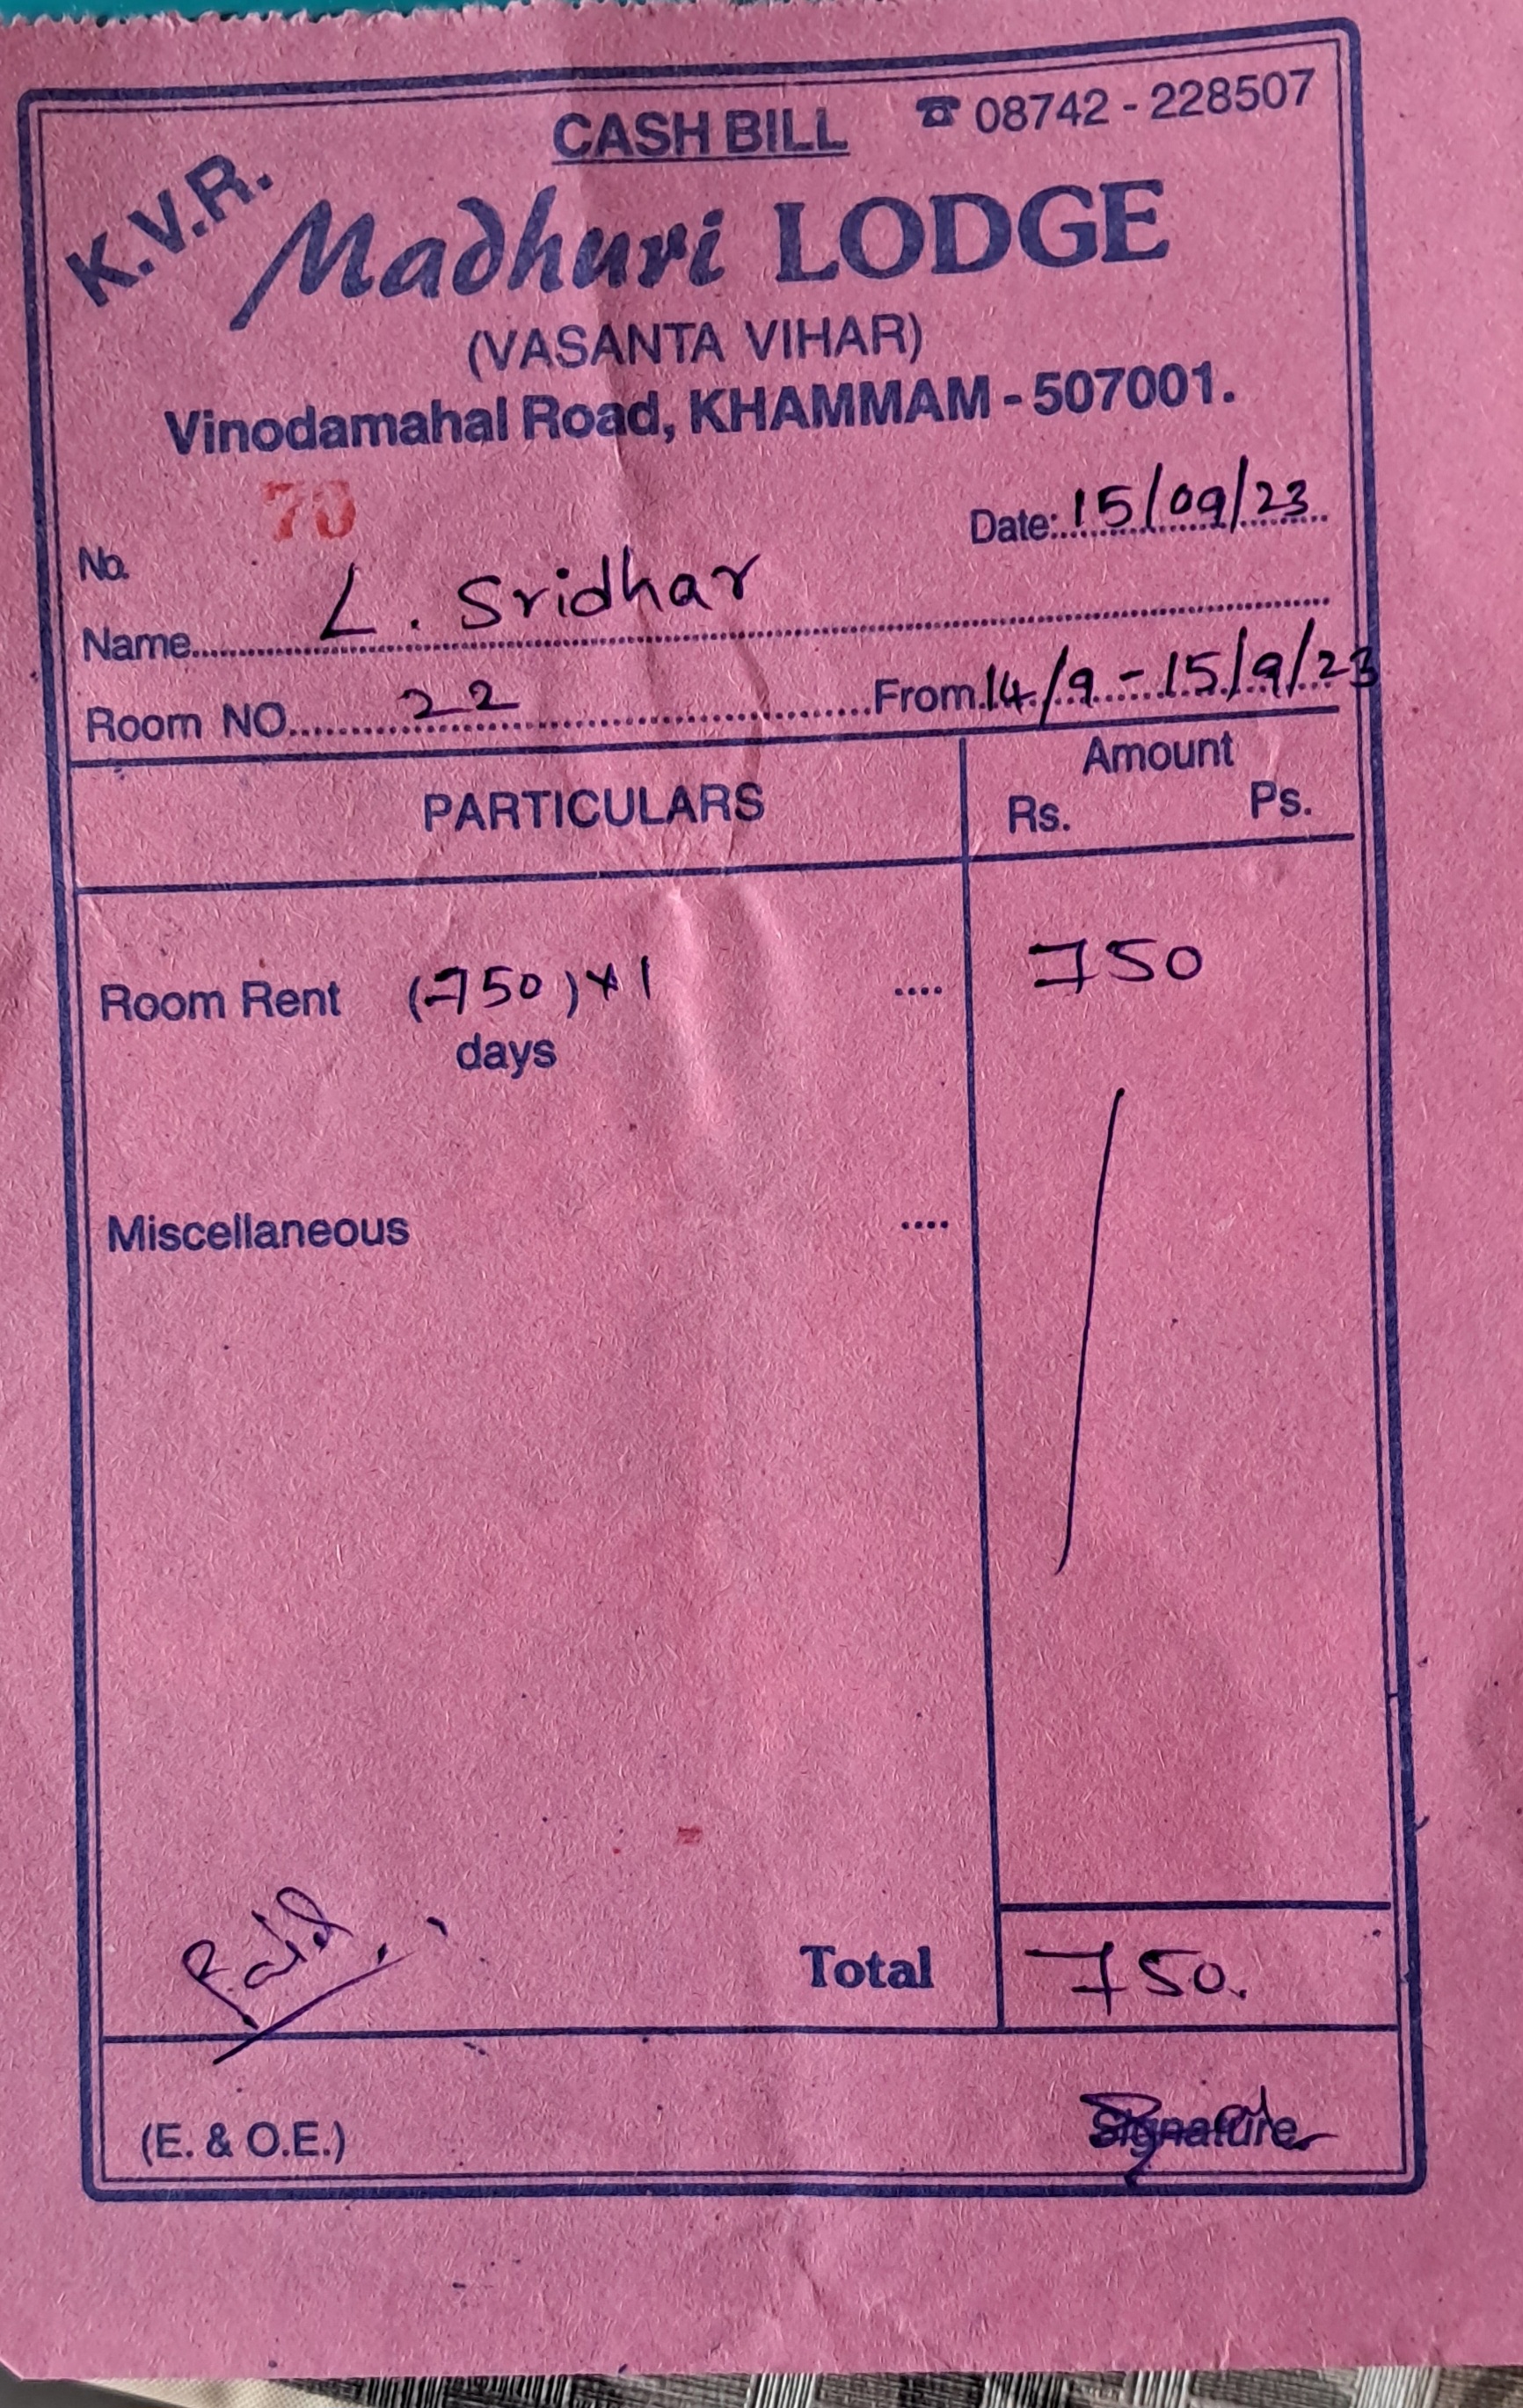 CASH BILL ☎ 08742 - 228507
K.V.R.
Madhuri LODGE
(VASANTA VIHAR)
Vinodamahal Road, KHAMMAM - 507001.
No. Date: 15/09/23
Name L. Sridhar
Room NO. 22 From 14/9 - 15/9/23
PARTICULARS Amount
Rs. Ps.
Room Rent (750) × 1 .... 750
days
Miscellaneous ....
Paid
Total 750.
(E. & O.E.) Signature